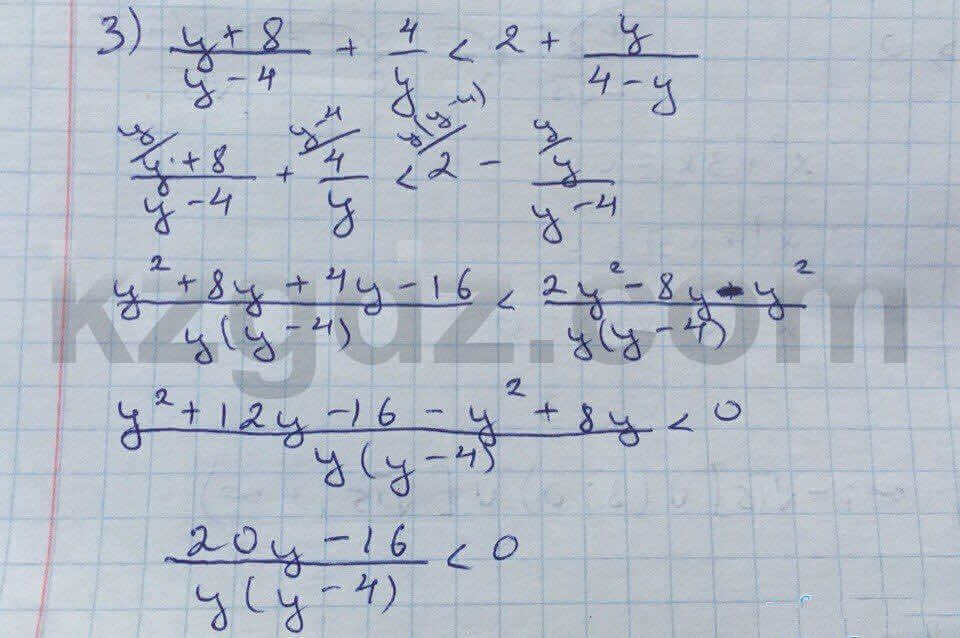 3) (y + 8)/(y - 4) + 4/y < 2 + y/(4 - y)
y/ (y + 8)/(y - 4) + y-4/ 4/y < y(y-4)/ 2 - y/ y/(y - 4)
(y² + 8y + 4y - 16)/(y(y - 4)) < (2y² - 8y - y²)/(y(y - 4))
kzgdz.com
(y² + 12y - 16 - y² + 8y)/(y(y - 4)) < 0
(20y - 16)/(y(y - 4)) < 0